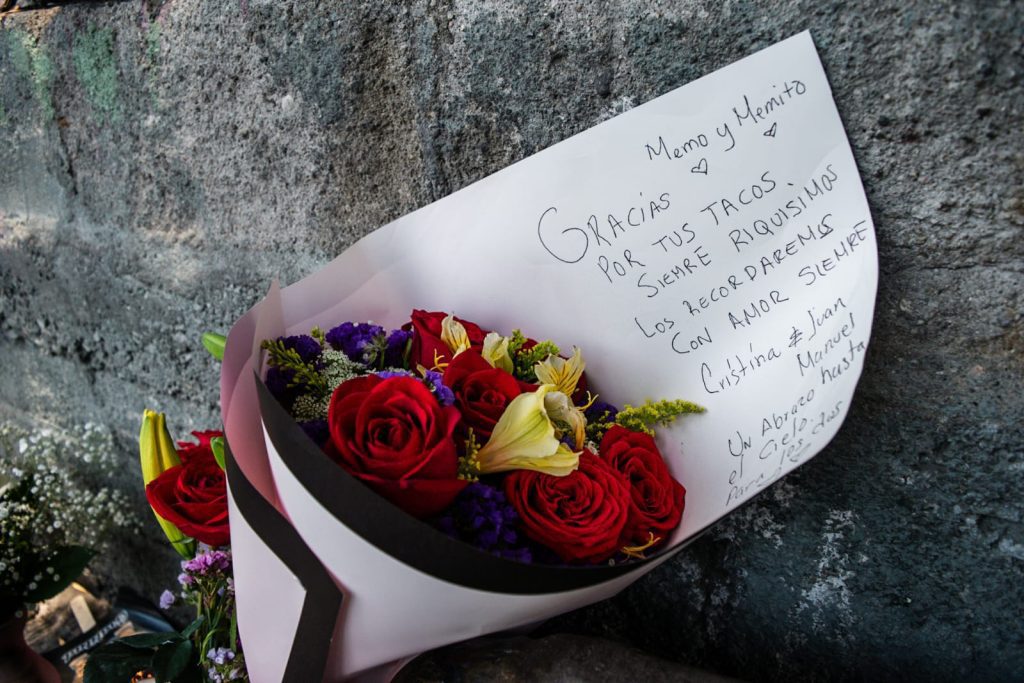 Memo y Memito
GRACIAS
POR TUS TACOS
SIEMRE RIQUISIMOS
LOS RECORDAREMOS
CON AMOR SIEMRE
Cristina # Juan
Manuel
UN Abrazo hasta
el Cielo.
para los dos